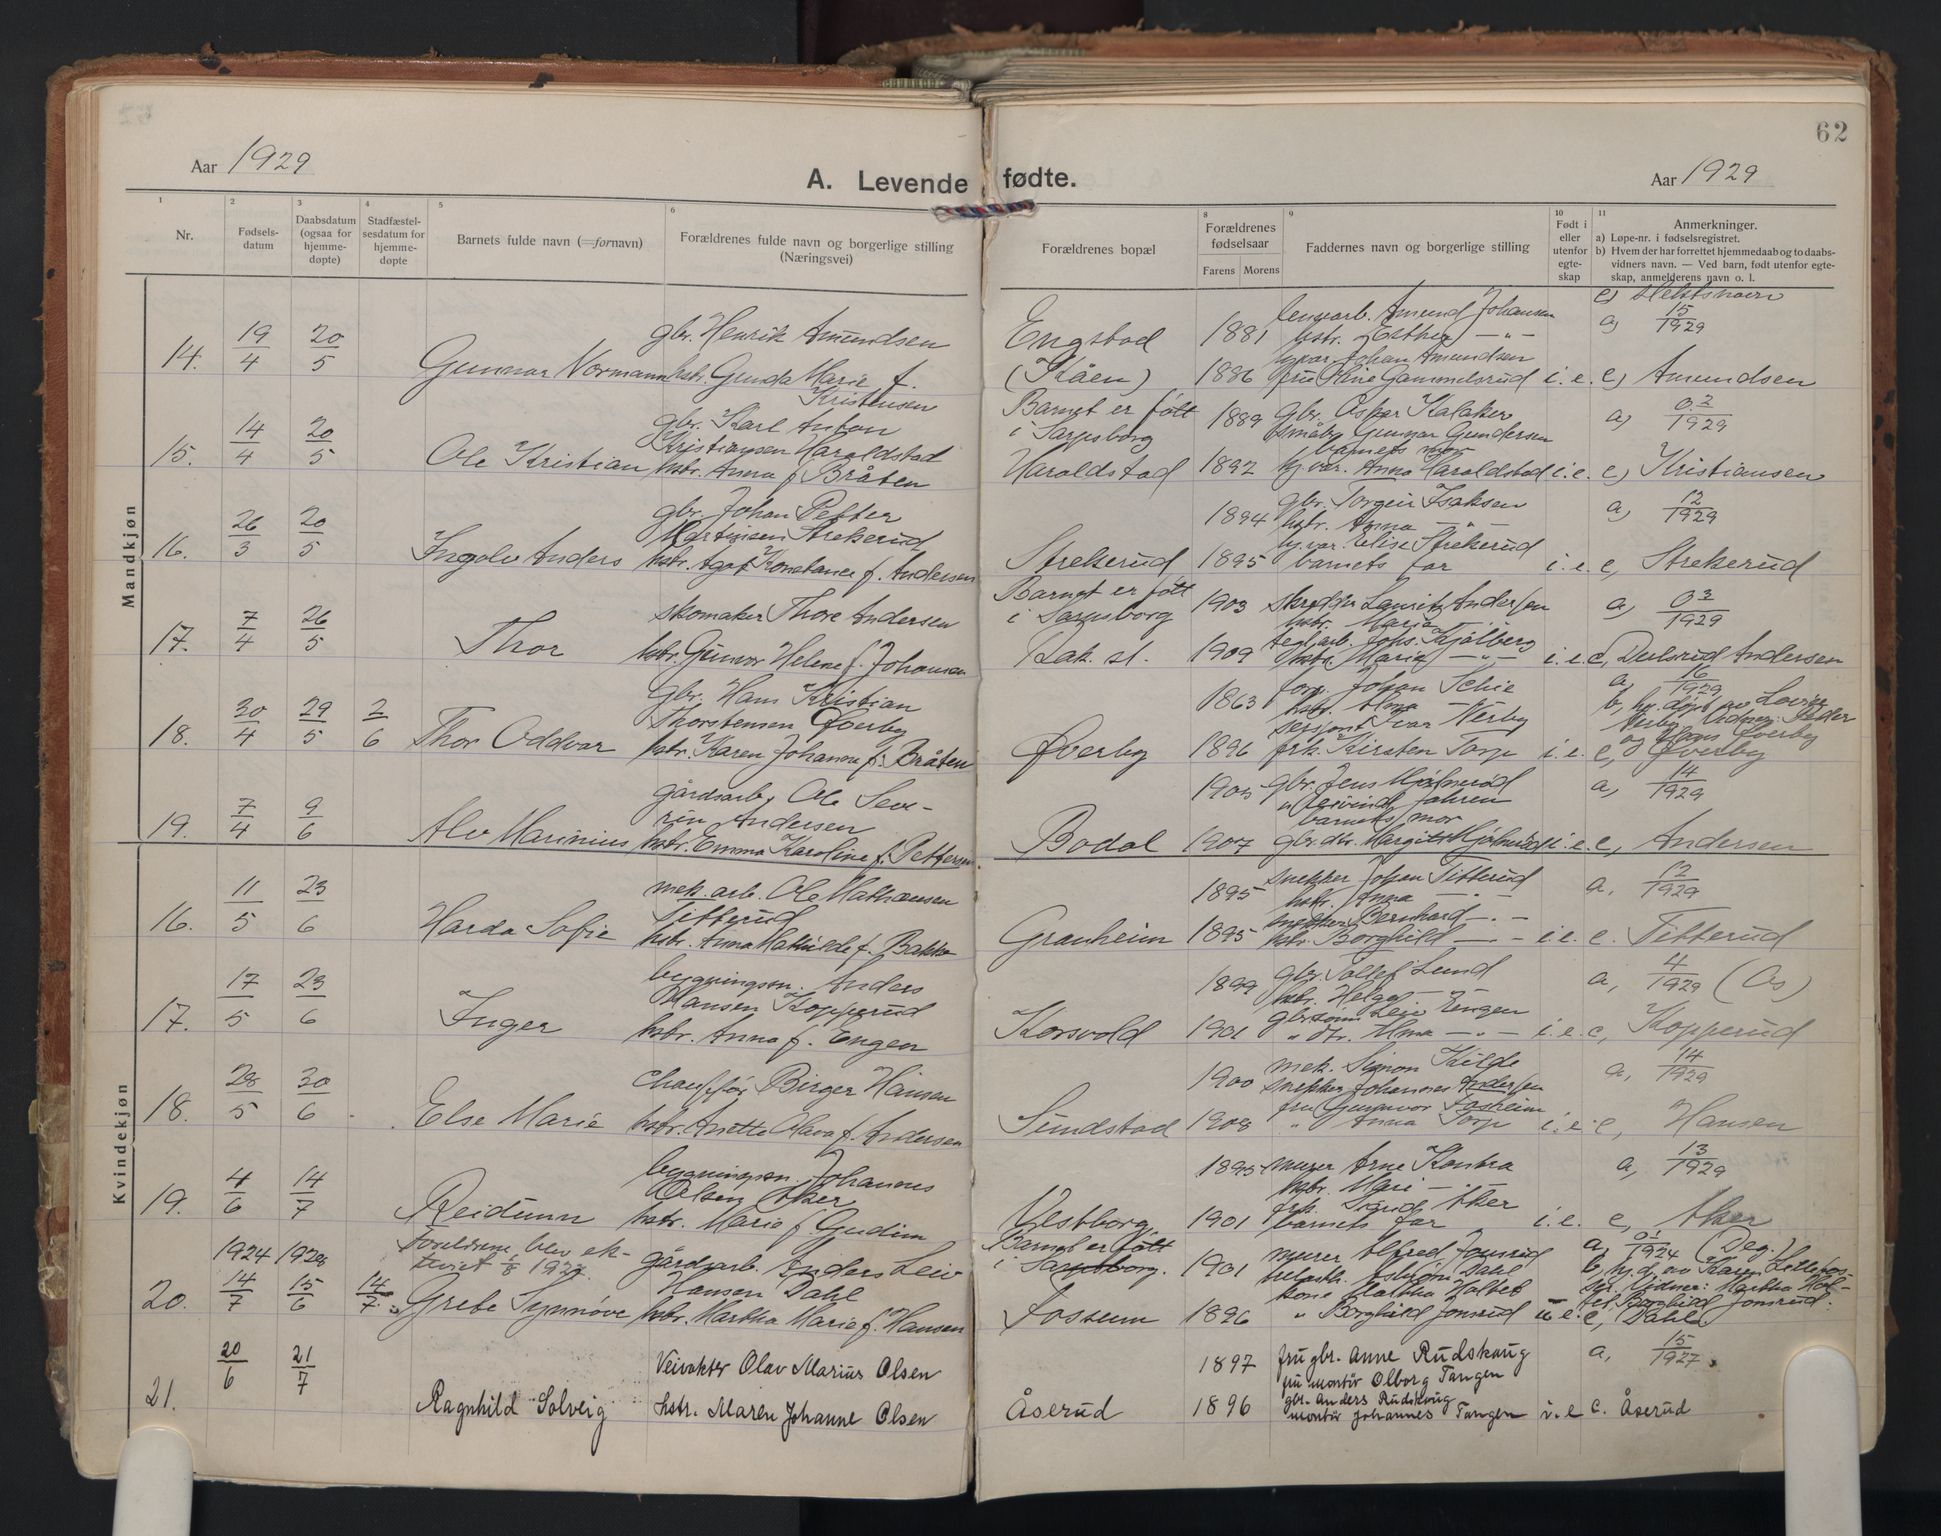 62
Aar 1929
A. Levende fødte.
Aar 1929
1 2 3 4 5 6 8 9 10 11
Nr.
Fødsels-
datum
Daabsdatum
(ogsaa for
hjemme-
døpte)
Stadfæstel-
sesdatum for
hjemme-
døpte
Barnets fulde navn (=fornavn)
Forældrenes fulde navn og borgerlige stilling
(Næringsvei)
Forældrenes bopæl
Forældrenes
fødselsaar
Farens Morens
Faddernes navn og borgerlige stilling
Født i
eller
utenfor
egte-
skap
Anmerkninger.
a) Løpe-nr. i fødselsregistret.
b) Hvem der har forrettet hjemmedaab og to daabs-
vidners navn. — Ved barn, født utenfor egte-
skap, anmelderens navn o. l.
c) Slektsnavn
Mandkjøn
14. 19/4 20/5 Gunnar Normann
gbr. Henrik Amundsen
hstr. Gunda Marie f.
Kristensen
Engstad
(Kåen)
1881
1886
Amund Johansen
hstr. Esther —"—
hj.var. Johan Amundsen
fru Oline Gammelsrud
i.e.
a) 15/1929
c) Amundsen
15. 14/4 20/5 Ole Kristian
gbr. Karl Anton
Kristiansen Haraldstad
hstr. Anna f. Bråten
Barnet er født
i Sarpsborg
Haraldstad
1889
1892
gbr. Oskar Kalaker
småbr. Gunnar Gundersen
barnets mor
hj.var. Anna Haraldstad
i.e.
a) 02/1929
c) Kristiansen
16. 26/3 20/5 Ingolv Anders
gbr. Johan Petter
Martinsen Strekerud
hstr. Agot Konstance f. Andersen
Strekerud
1894
1895
gbr. Torgeir Isaksen
hstr. Anna —"—
hj.var. Elise Strekerud
barnets far
i.e.
a) 12/1929
c, Strekerud
17. 7/4 26/5 Thor
skomaker Thore Andersen
hstr. Gunvor Helene f. Johansen
Barnet er født
i Sarpsborg
Rak. st.
1903
1909
skredder Lauritz Andersen
hstr. Maria
teglarb. Johs. Kjølberg
hstr. Marie —"—
i.e.
a) 03/1929
c, Andersen
18. 30/4 29/5 2/6 Thor Oddvar
gbr. Hans Kristian
Thorstensen Øverby
hstr. Karen Johanna f. Bråten
Øverby
1863
1896
Johan Schie
hstr. Alma —
sersjant Ivar Nerby
frk. Kirsten Torp
i.e.
a, 16/1929
b, hj. døpt av Lovise
Nerby. Vidner: Peder
og Hans Øverby
c, Øverby
19. 7/4 9/6 Alv Marinius
gårdsarb. Ole Sev-
rin Andersen
hstr. Emma Karoline f. Pettersen
Bodal
1905
1907
gbr. Jens Mjølnerød
barnets mor
i.e.
a, 14/1929
c, Andersen
Kvindekjøn
16. 11/5 23/6 Harda Sofie
mek. arb. Ole Mathæusen
Titterud
hstr. Anna Mathilde f. Bakke
Granheim
1895
1895
snekker Johan Titterud
hstr. Anna —
snekker Bernhard —"—
hstr. Borghild —"—
i.e.
a, 12/1929
c. Titterud
17. 17/5 23/6 Inger
bygningsn. Anders
Hansen Kopperud
hstr. Anna f. Engen
Korsvold
1899
1901
gbr. Tollef Lund
hstr. Helga —"—
gbr.sønn Leiv Engen
" dtr. Alma —"—
i.e.
a, 4/1929 (Ås)
c, Kopperud
18. 28/5 30/6 Else Marie
chauffør Birger Hansen
hstr. Anette Olava f. Andersen
Sundstad
1900
1908
mek. Simon Kilde
snekker Johannes Andersen
fru Gunvor Fosheim
" Anna Torp
i.e.
a, 14/1929
c, Hansen
19. 4/6 14/7 Reidunn
bygningsn. Johannes
Olsen Aker
hstr. Marie f. Gudim
Vestborg.
1895
1901
murer Arne Kantra
hstr. Mari —"—
frk. Sigrid Aker
barnets far
i.e.
a, 13/1929
c, Aker
1924 1928
Foreldrene blev ek-
teviet 1/8 1927.
20. 14/7 15/6 14/7 Grete Synnøve
gårdsarb. Anders Leiv
Hansen Dahl
hstr. Martha Marie f. Hansen
Barnet er født
i Sarpsborg.
Fossum
1901
1896
murer Alfred Jonsrud
Asbjørn Dahl
kone Martha Holtet
" Borghild Jonsrud
u.e.
a, 01/1924 (Deg.)
b, hj.d. av Karen Lillefos-
Vidner: Martha Hol-
tet, Borghild Jonsrud.
c, Dahl
21. 20/6 21/7 Ragnhild Solveig
Veivokter Olav Marius Olsen
hstr. Maren Johanne Olsen
Åserud
1897
1896
fru gbr. Anne Rudskaug
fru montør Olborg Tangen
gbr. Anders Rudskaug
montør Johannes Tangen
i.e
a, 15/1927.
c. Åserud